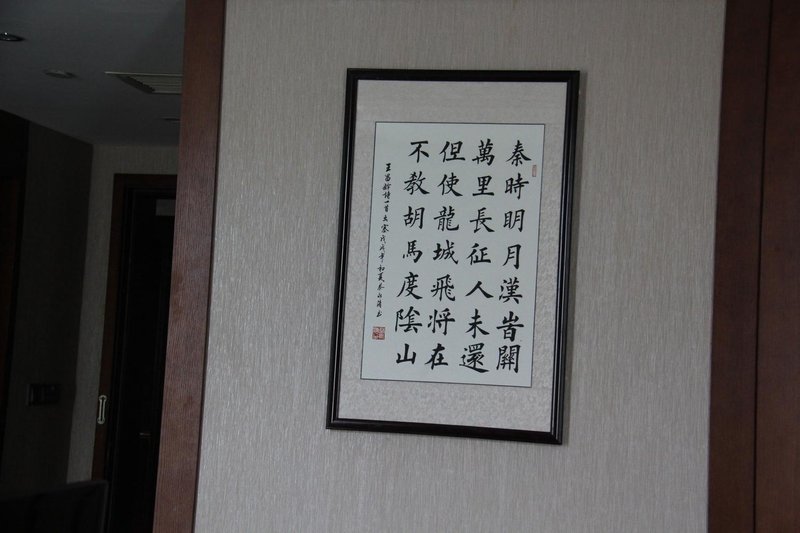 秦時明月漢旹關
萬里長征人未還
但使龍城飛将在
不教胡馬度陰山
王昌齡詩一首出塞戊戌年初夏